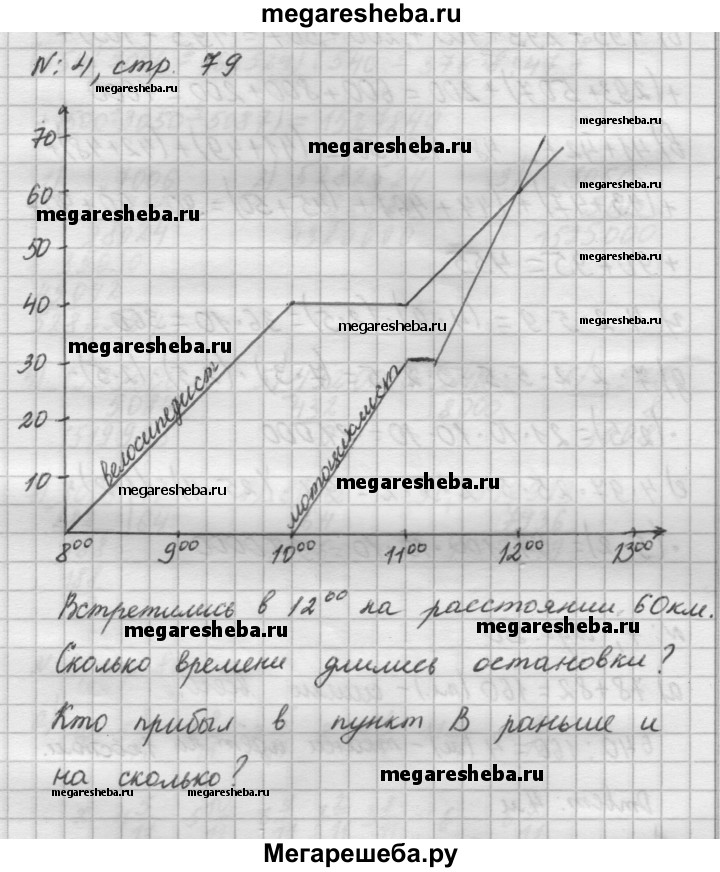 megaresheba.ru
N: 4, стр. 79
megaresheba.ru
a
70
megaresheba.ru
megaresheba.ru
60
megaresheba.ru
megaresheba.ru
50
megaresheba.ru
40
megaresheba.ru
megaresheba.ru
megaresheba.ru
30
велосипедист
мотоциклист
20
10
megaresheba.ru
megaresheba.ru
8⁰⁰ 9⁰⁰ 10⁰⁰ 11⁰⁰ 12⁰⁰ 13⁰⁰
Встретились в 12⁰⁰ на расстоянии 60км.
megaresheba.ru
megaresheba.ru
Сколько времени длились остановки?
Кто прибыл в пункт В раньше и
на сколько?
megaresheba.ru
megaresheba.ru
megaresheba.ru
Мегарешеба.ру